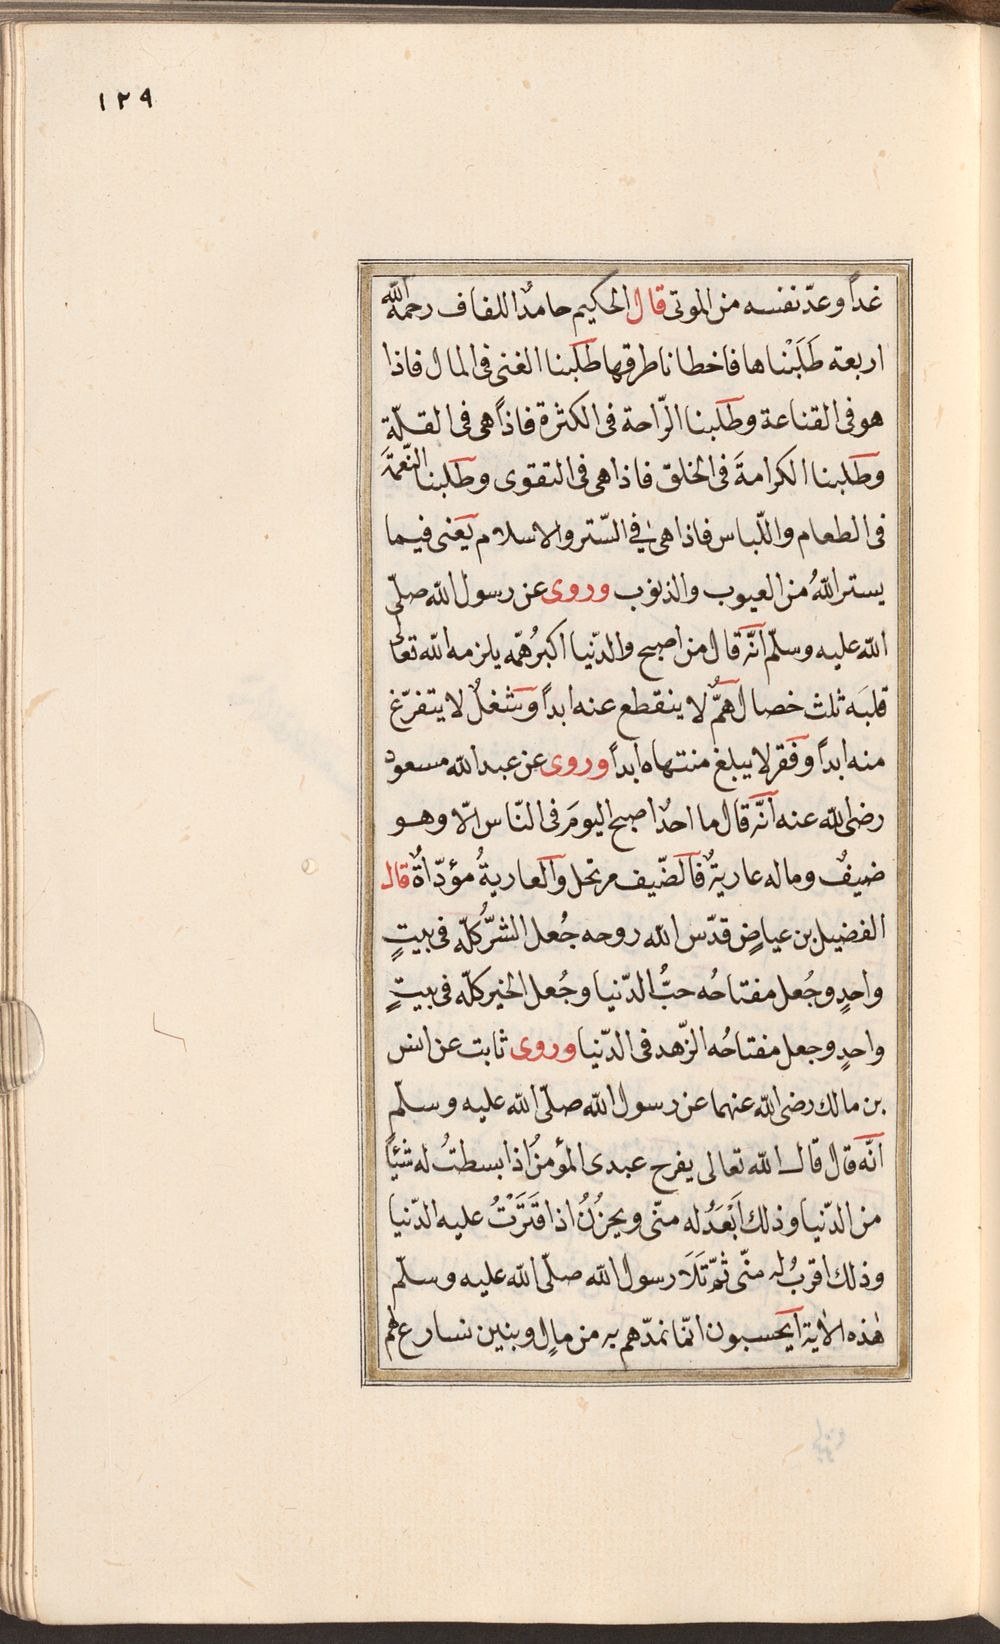 ١٢٩
غداً وعدّ نفسه من الموتى قال الحكيم حامدٌ اللفاف رحمه الله
اربعة طَلَبْناها فاخطانا طرقها طلبنا الغنى فى المال فاذا
هو فى القناعة وطلبنا الرّاحة فى الكثرة فاذاً هى فى القلّة
وطلبنا الكرامةَ فى الخلق فاذا هى فى التقوى وطلبنا النّعمةَ
فى الطعام واللّباس فاذا هى فى السّتر والاسلام يَعنى فيما
يستر اللّٰهُ من العيوب والذنوب وروى عن رسول اللّٰه صلّى
اللّٰه عليه وسلّم انّه قال من اصبح والدّنيا اكبرُ همّه يلزمه اللّٰه تعالى
قلبَه ثلث خصال همٌّ لا ينقطع عنه ابداً وشغلٌ لا يتفرّغ
منه ابداً وفقر لا يبلغ منتهاه ابداً وروى عن عبد اللّٰه مسعود
رضى اللّٰه عنه انّه قال ما احدٌ اصبح اليومَ فى النّاس الّا وهو
ضيفٌ وماله عاريةٌ فالضّيف مرتحل والعاريةُ مؤدّاةٌ قال
الفضيل بن عياضٍ قدّس اللّٰه روحه جُعل الشرُّ كلّه فى بيتٍ
واحدٍ وجُعل مفتاحُه حبُّ الدّنيا وجُعل الخير كلّه فى بيتٍ
واحدٍ وجعل مفتاحُه الزّهد فى الدّنيا وروى ثابت عن انس
بن مالك رضى اللّٰه عنهما عن رسول اللّٰه صلّى اللّٰه عليه وسلّم
انّه قال قال اللّٰه تعالى يفرح عبدى المؤمنُ اذا بسطتُ له شئًا
من الدّنيا وذلك اَبْعَدُ له منّى ويحزُنُ اذا قَتَرْتُ عليه الدّنيا
وذلك اقربُ له منّى ثمّ تَلَا رسول اللّٰه صلّى اللّٰه عليه وسلّم
هٰذه الاٰية ايحسبون انّما نمدّهم به من مالٍ وبنين نسارع لهم